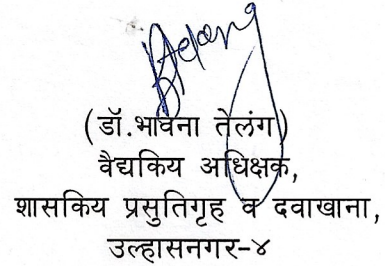 (डॉ.भावना तेलंग)
वैद्यकिय अधिक्षक,
शासकिय प्रसुतिगृह व दवाखाना,
उल्हासनगर-४